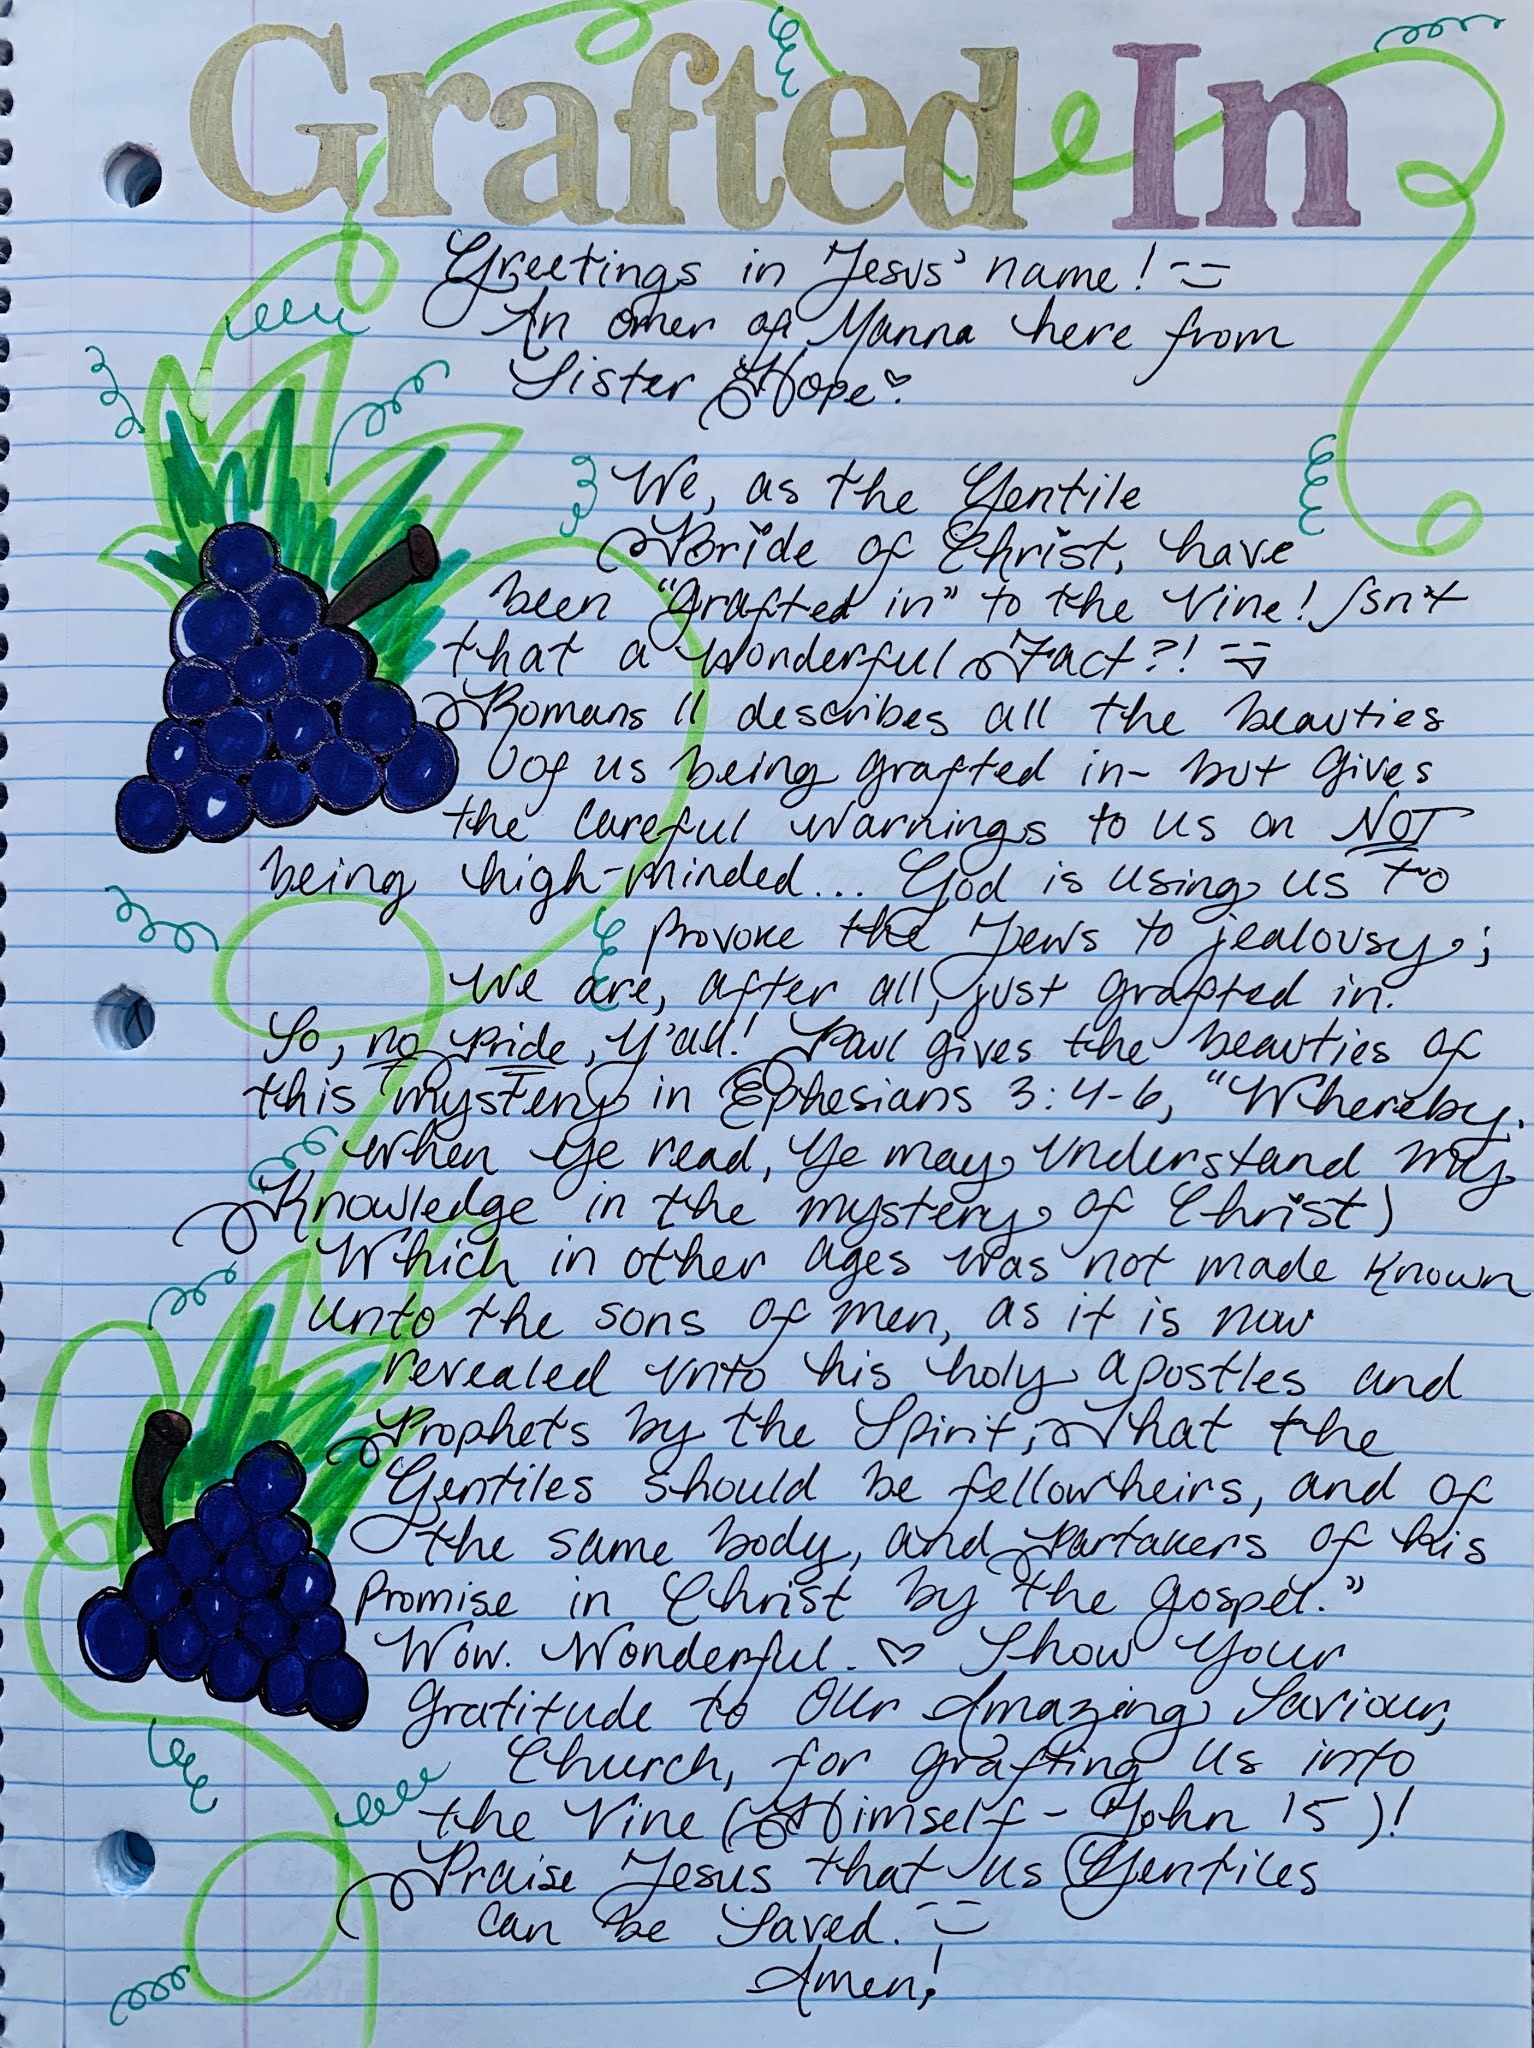 Grafted In
Greetings in Jesus' name! =)
An omer of Manna here from
Sister Hope♡.
We, as the Gentile
Bride of Christ, have
been "grafted in" to the Vine! Isn't
that a wonderful Fact?! =D
Romans 11 describes all the beauties
of us being grafted in- but gives
the careful warnings to us on NOT
being high-minded... God is using us to
provoke the Jews to jealousy;
we are, after all, just grafted in.
So, no Pride, y'all! Paul gives the beauties of
this mystery in Ephesians 3:4-6, "Whereby,
when ye read, ye may understand my
Knowledge in the mystery of Christ)
Which in other ages was not made known
unto the sons of men, as it is now
revealed unto his holy apostles and
Prophets by the Spirit; That the
Gentiles should be fellowheirs, and of
the same body, and Partakers of his
Promise in Christ by the gospel."
Wow. Wonderful. ♡ Show your
gratitude to our Amazing Saviour,
Church, for grafting us into
the Vine (Himself - John 15)!
Praise Jesus that us Gentiles
can be Saved. =)
Amen!